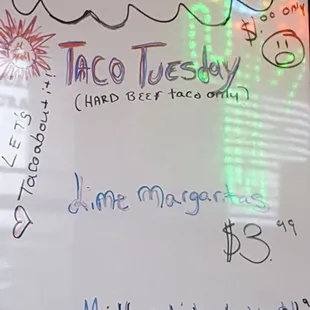 $1.00 only
TACO TUESday
(HARD BEEF taco only)
LET'S
Tacoabout it!
Lime Margaritas
$3.99